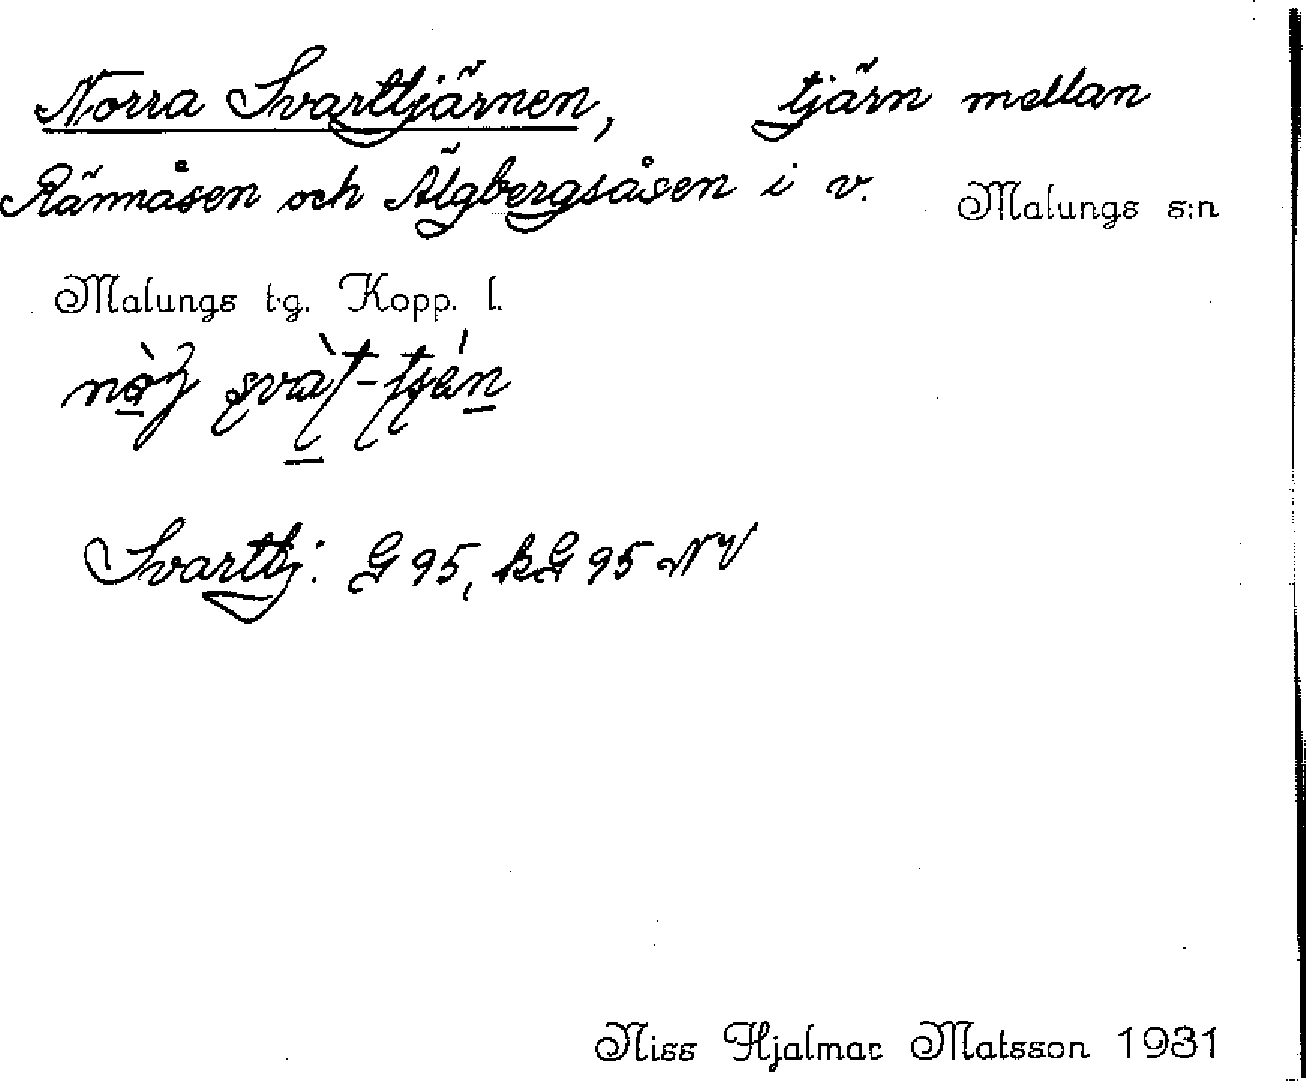 Norra Svarttjärnen, tjärn mellan
Rännåsen och Älgbergsåsen i v. Malungs s:n
Malungs t.g. Kopp. l.
Svarttj: G 95, kG 95 NV
Niss Hjalmar Matsson 1931